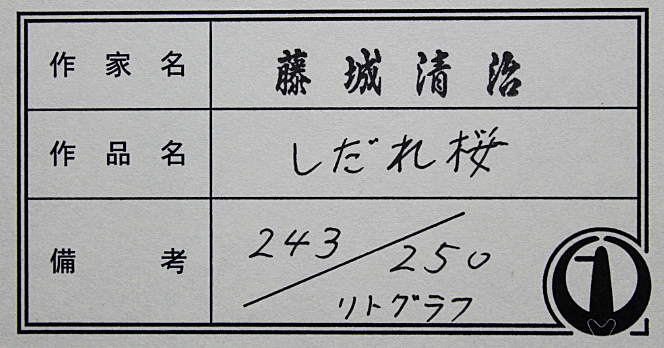 作家名 藤城清治
作品名 しだれ桜
備考 243/250
リトグラフ